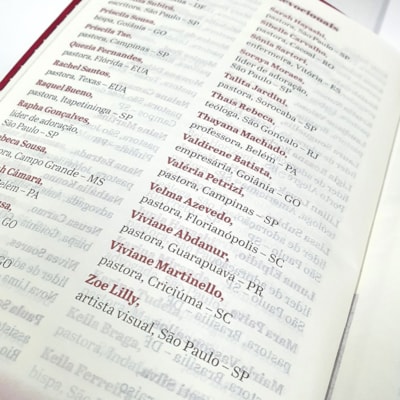 – DF
escritor, São Paulo – SP
Priscila Sousa,
bispa, Goiânia – GO
Priscila Tar,
pastora, Campinas – SP
Quezia Fernandes,
pastora, Flórida – EUA
Rachel Santos,
pastora, Texas – EUA
Raquel Bueno,
pastora, Itapetininga – SP
Rapha Gonçalves,
líder de adoração,
São Paulo – SP
beca Sousa,
ora, Campo Grande – MS
h Câmara,
elém – PA
usa,
GO
GO
evocionais
Sarah Hayashi,
pastora, São Paulo – SP
Sibele Carvalho,
enfermeira, Vitória – ES
Soraya Moraes,
líder de adoração,
São Paulo – SP
Talita Jardini,
pastora, Sorocaba – SP
Thaís Rebeca,
teóloga, São Gonçalo – RJ
Thayana Machado,
professora, Belém – PA
Valdirene Batista,
empresária, Goiânia – GO
Valéria Petrizi,
pastora, Campinas – SP
Velma Azevedo,
pastora, Florianópolis – SC
Viviane Abdanur,
pastora, Guarapuava – PR
Viviane Martinello,
pastora, Criciuma – SC
Zoe Lilly,
artista visual, São Paulo – SP